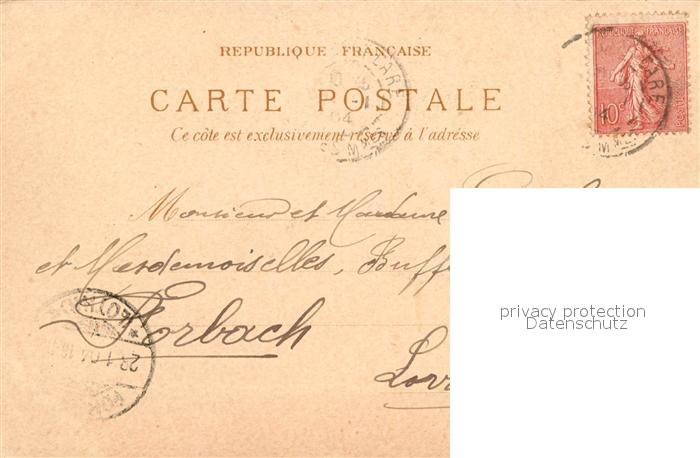 REPUBLIQUE FRANÇAISE
CARTE POSTALE
Ce côté est exclusivement réservé à l'adrésse
REPUBLIQUE FRANÇAISE
10c
Monsieur et Madame
et Mesdemoiselles, Buff
Forbach
Lorr
privacy protection
Datenschutz